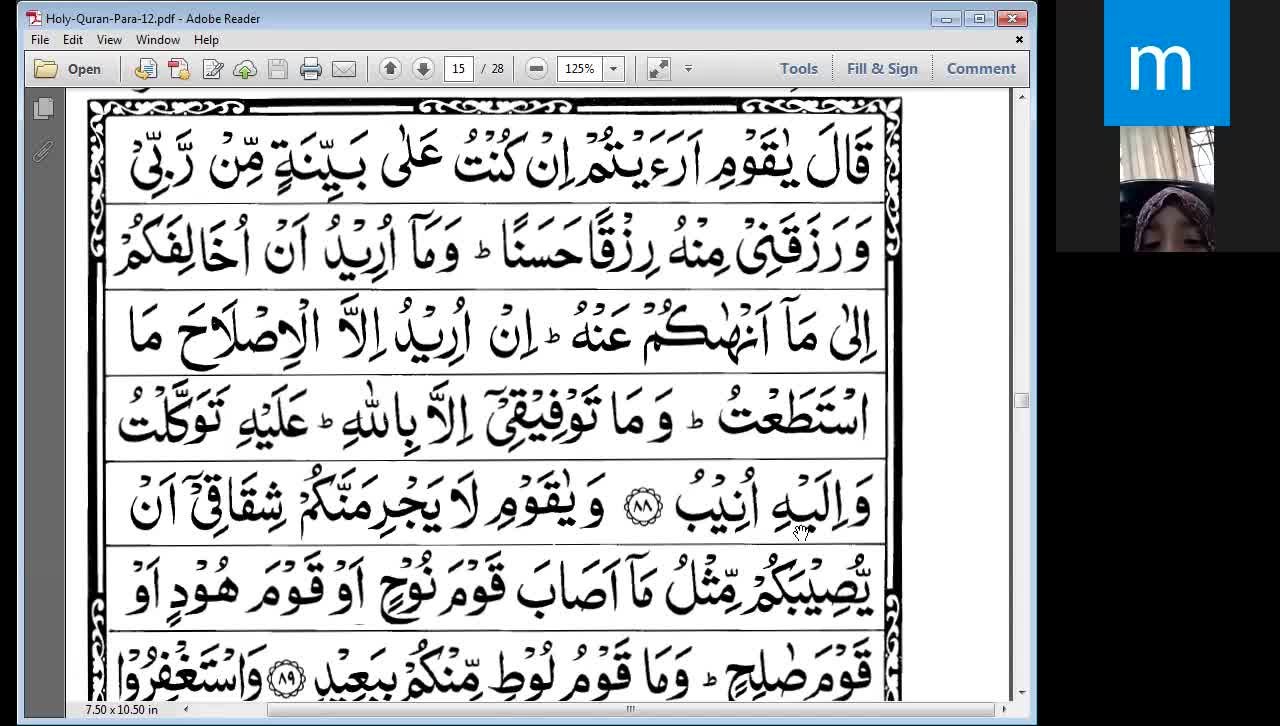 Holy-Quran-Para-12.pdf - Adobe Reader
File Edit View Window Help
Open 15 / 28 125% Tools Fill & Sign Comment
m
قَالَ يٰقَوْمِ اَرَءَيْتُمْ اِنْ كُنْتُ عَلٰى بَيِّنَةٍ مِّنْ رَّبِّىْ
وَرَزَقَنِىْ مِنْهُ رِزْقًا حَسَنًا ؕ وَمَاۤ اُرِيْدُ اَنْ اُخَالِفَكُمْ
اِلٰى مَاۤ اَنْهٰىكُمْ عَنْهُ ؕ اِنْ اُرِيْدُ اِلَّا الْاِصْلَاحَ مَا
اسْتَطَعْتُ ؕ وَمَا تَوْفِيْقِىْۤ اِلَّا بِاللّٰهِ ؕ عَلَيْهِ تَوَكَّلْتُ
وَاِلَيْهِ اُنِيْبُ ﴿۸۸﴾ وَيٰقَوْمِ لَا يَجْرِمَنَّكُمْ شِقَاقِىْۤ اَنْ
يُّصِيْبَكُمْ مِّثْلُ مَاۤ اَصَابَ قَوْمَ نُوْحٍ اَوْ قَوْمَ هُوْدٍ اَوْ
قَوْمَ صٰلِحٍ ؕ وَمَا قَوْمُ لُوْطٍ مِّنْكُمْ بِبَعِيْدٍ ﴿۸۹﴾ وَاسْتَغْفِرُوْا
7.50 x 10.50 in